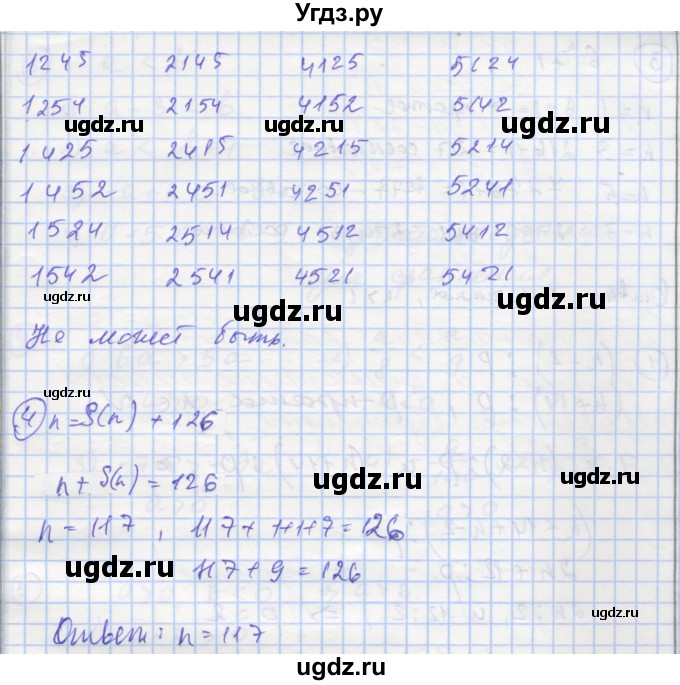 Угдз.ру
1245 2145 4125 5124
1254 2154 4152 5142
ugdz.ru ugdz.ru ugdz.ru
1425 2415 4215 5214
1452 2451 4251 5241
1524 2514 4512 5412
1542 2541 4521 5421
ugdz.ru ugdz.ru ugdz.ru
Не может быть.
ugdz.ru
④ n = S(n) + 126
n + S(n) = 126
ugdz.ru
n = 117, 117 + 1+1+7 = 126
117 + 9 = 126
ugdz.ru ugdz.ru
Ответ: n = 117
ugdz.ru